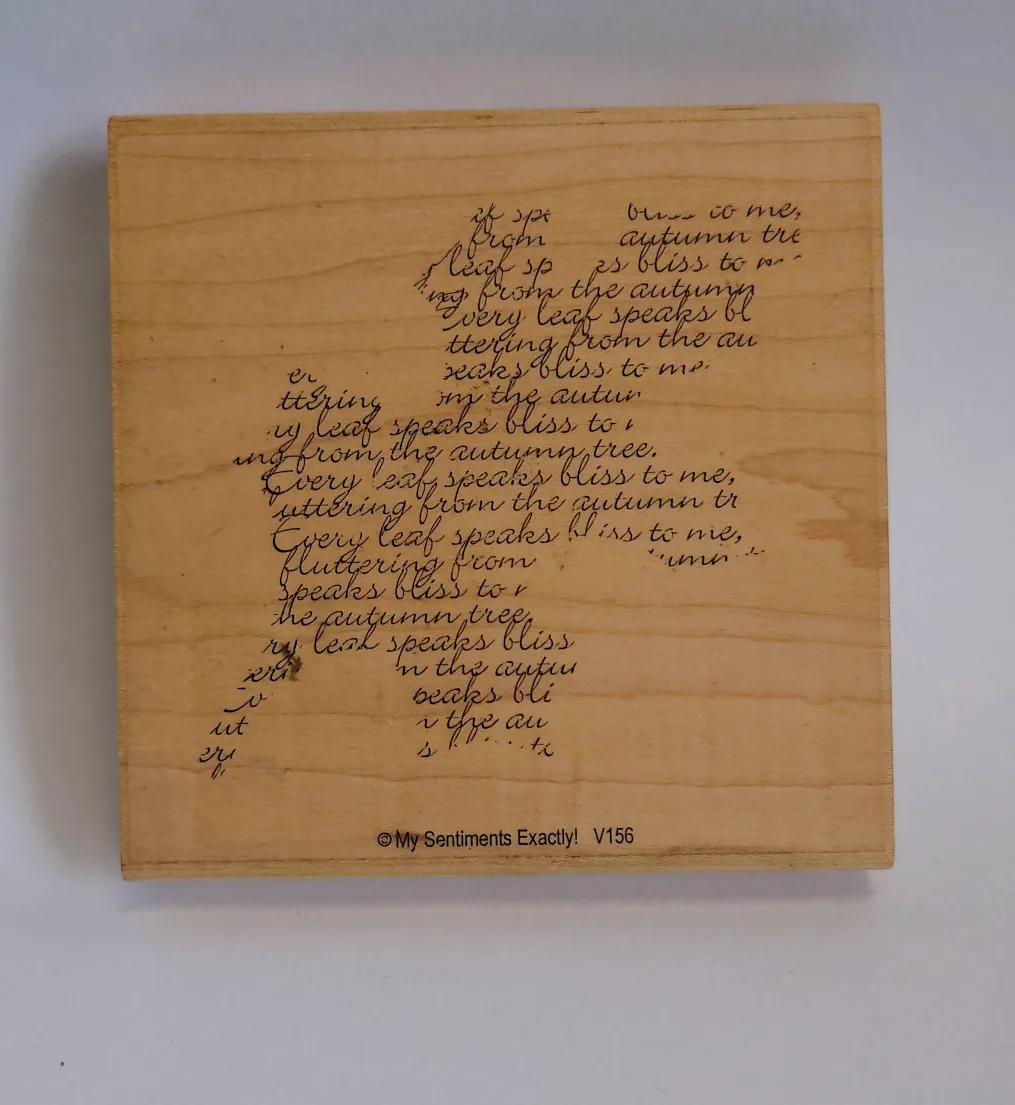 from autumn
leaf bliss to
from the autumn
very leaf speaks
ttering from the au
bliss to me
ttering the
leaf speaks bliss to
ing from the autumn tree.
Every leaf speaks bliss to me,
uttering from the autumn tr
Every leaf speaks bliss to me,
fluttering from
speaks bliss to
the autumn tree.
ry leaf speaks bliss
the
speaks bli
ut the au
s
©My Sentiments Exactly! V156